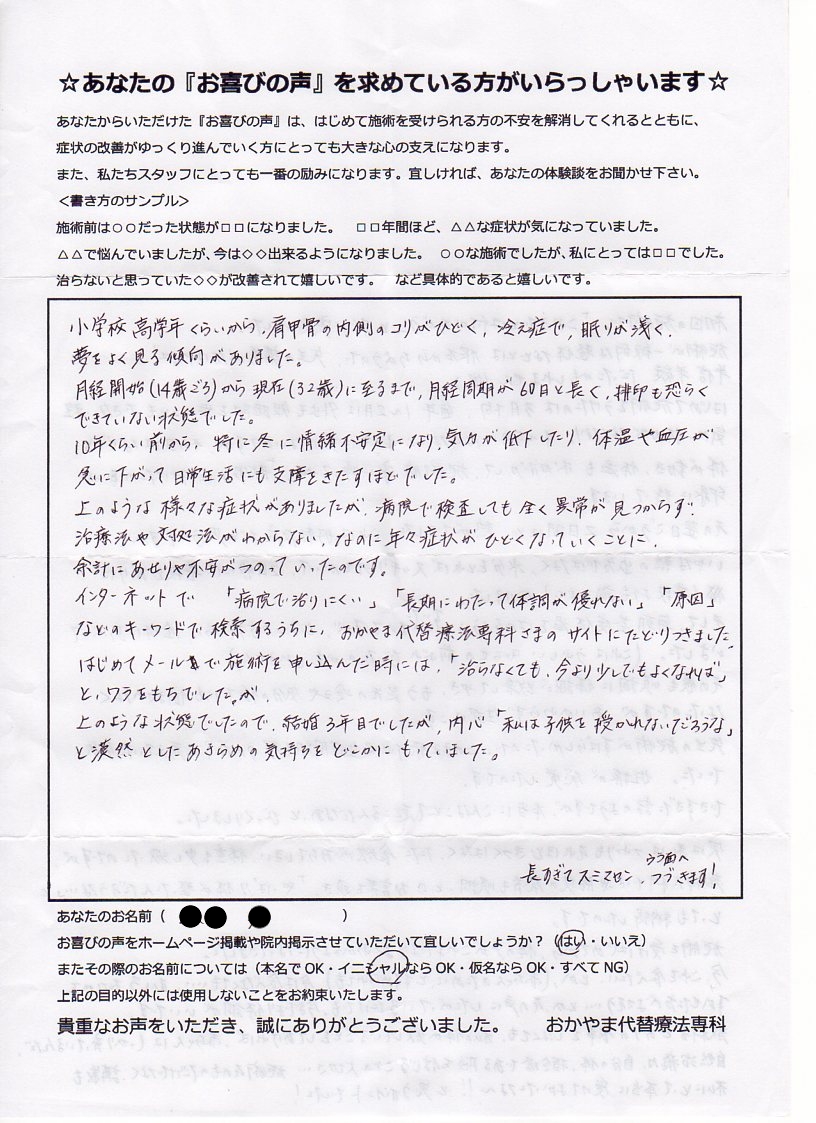 ☆あなたの『お喜びの声』を求めている方がいらっしゃいます☆
あなたからいただけた『お喜びの声』は、はじめて施術を受けられる方の不安を解消してくれるとともに、
症状の改善がゆっくり進んでいく方にとっても大きな心の支えになります。
また、私たちスタッフにとっても一番の励みになります。宜しければ、あなたの体験談をお聞かせ下さい。
＜書き方のサンプル＞
施術前は○○だった状態が□□になりました。　□□年間ほど、△△な症状が気になっていました。
△△で悩んでいましたが、今は◇◇出来るようになりました。　○○な施術でしたが、私にとっては□□でした。
治らないと思っていた◇◇が改善されて嬉しいです。　など具体的であると嬉しいです。
小学校高学年くらいから、肩甲骨の内側のコリがひどく、冷え症で、眠りが浅く、
夢をよく見る傾向がありました。
月経開始(14歳ごろ)から現在(32歳)に至るまで、月経周期が60日と長く、排卵も恐らく
できていない状態でした。
10年くらい前から、特に冬に情緒不安定になり、気力が低下したり、体温や血圧が
急に下がって日常生活にも支障をきたすほどでした。
上のような様々な症状がありましたが、病院で検査しても全く異常が見つからず、
治療法や対処法がわからない、なのに年々症状がひどくなっていくことに、
余計にあせりや不安がつのっていったのです。
インターネットで「病院で治りにくい」「長期にわたって体調が優れない」「原因」
などのキーワードで検索するうちに、おかやま代替療法専科さまのサイトにたどりつきました
はじめてメールで施術を申し込んだ時には、「治らなくても、今より少しでもよくなれば」
と、ワラをもちでした。が、
上のような状態でしたので、結婚3年目でしたが、内心「私は子供を授かれないだろうな」
と漠然としたあきらめの気持ちをどこかにもっていました。
長すぎてスミマセン、ウラ面へつづきます!
あなたのお名前（　　　　　　　　）
お喜びの声をホームページ掲載や院内掲示させていただいて宜しいでしょうか？（はい・いいえ）
またその際のお名前については（本名でOK・イニシャルならOK・仮名ならOK・すべてNG）
上記の目的以外には使用しないことをお約束いたします。
貴重なお声をいただき、誠にありがとうございました。　おかやま代替療法専科